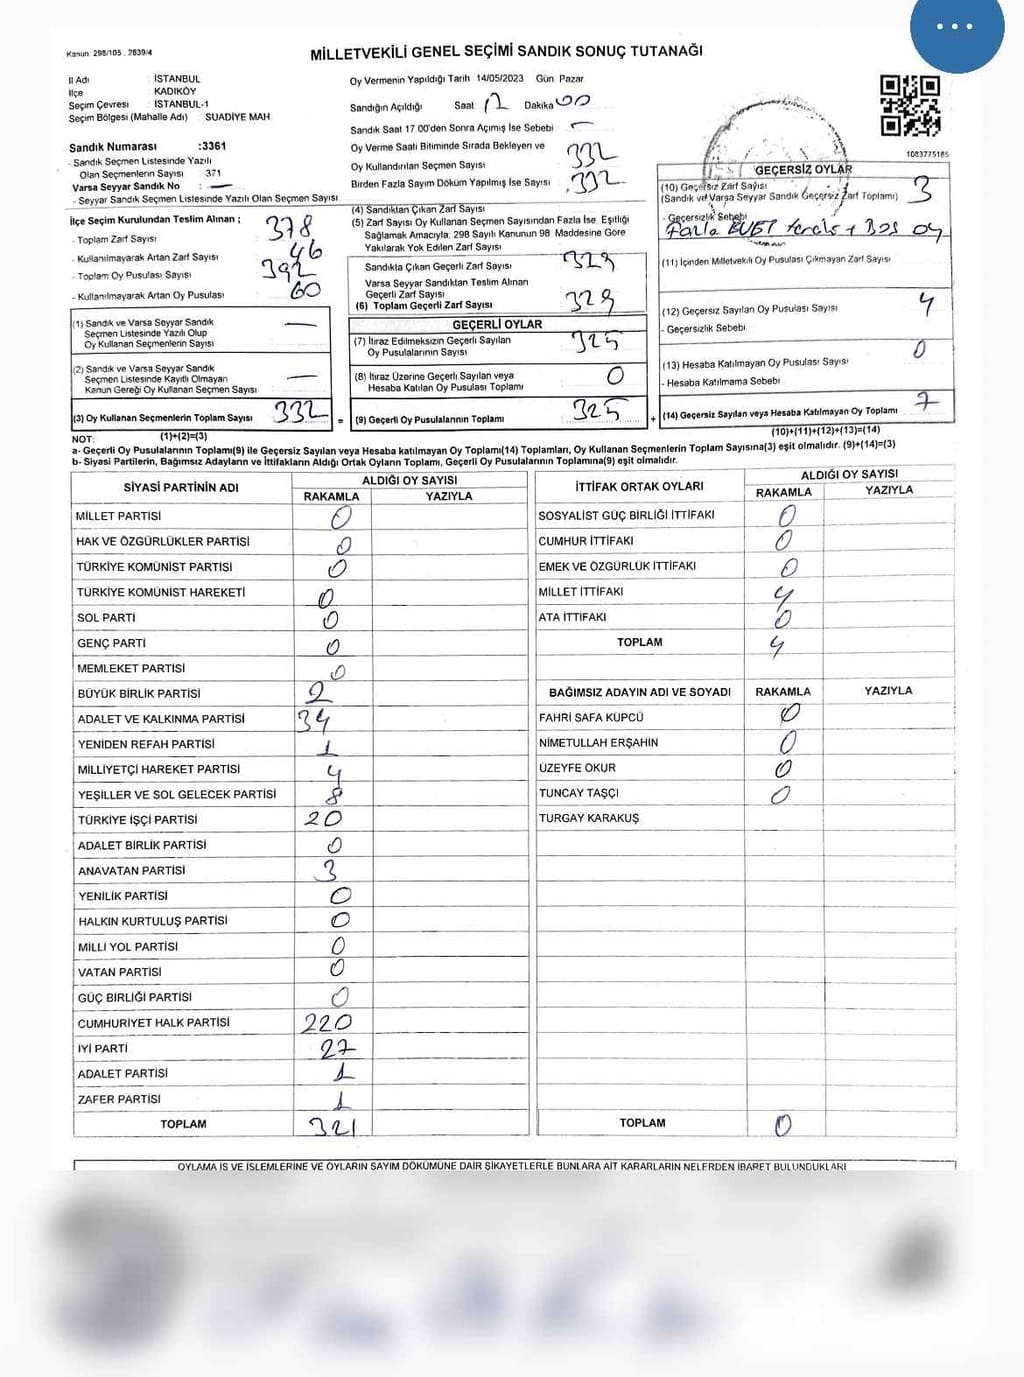 Kanun. 298/105 , 2839/4
MİLLETVEKİLİ GENEL SEÇİMİ SANDIK SONUÇ TUTANAĞI
İl Adı : İSTANBUL
İlçe KADIKÖY
Seçim Çevresi : İSTANBUL-1
Seçim Bölgesi (Mahalle Adı) SUADİYE MAH
Sandık Numarası :3361
- Sandık Seçmen Listesinde Yazılı
Olan Seçmenlerin Sayısı 371
Varsa Seyyar Sandık No : —
- Seyyar Sandık Seçmen Listesinde Yazılı Olan Seçmen Sayısı
Oy Vermenin Yapıldığı Tarih 14/05/2023 Gün Pazar
Sandığın Açıldığı Saat Dakika 00
Sandık Saat 17 00'den Sonra Açımış İse Sebebi —
Oy Verme Saati Bitiminde Sırada Bekleyen ve
Oy Kullandırılan Seçmen Sayısı 332
Birden Fazla Sayım Döküm Yapılmış İse Sayısı 332
1083775185
İlçe Seçim Kurulundan Teslim Alınan ;
- Toplam Zarf Sayısı 378
- Kullanılmayarak Artan Zarf Sayısı 46
- Toplam Oy Pusulası Sayısı 392
- Kullanılmayarak Artan Oy Pusulası 60
(1) Sandık ve Varsa Seyyar Sandık
Seçmen Listesinde Yazılı Olup
Oy Kullanan Seçmenlerin Sayısı —
(2) Sandık ve Varsa Seyyar Sandık
Seçmen Listesinde Kayıtlı Olmayan
Kanun Gereği Oy Kullanan Seçmen Sayısı —
(3) Oy Kullanan Seçmenlerin Toplam Sayısı 332 =
(1)+(2)=(3)
(4) Sandıktan Çıkan Zarf Sayısı
(5) Zarf Sayısı Oy Kullanan Seçmen Sayısından Fazla İse, Eşitliği
Sağlamak Amacıyla, 298 Sayılı Kanunun 98 Maddesine Göre
Yakılarak Yok Edilen Zarf Sayısı
Sandıkla Çıkan Geçerli Zarf Sayısı 329
Varsa Seyyar Sandıktan Teslim Alınan
Geçerli Zarf Sayısı
(6) Toplam Geçerli Zarf Sayısı 329
GEÇERLİ OYLAR
(7) İtiraz Edilmeksizin Geçerli Sayılan
Oy Pusulalarının Sayısı 325
(8) İtiraz Üzerine Geçerli Sayılan veya
Hesaba Katılan Oy Pusulası Toplamı 0
(9) Geçerli Oy Pusulalarının Toplamı 325 +
GEÇERSİZ OYLAR
(10) Geçersiz Zarf Sayısı 3
(Sandık ve Varsa Seyyar Sandık Geçersiz Zarf Toplamı)
- Geçersizlik Sebebi
Fazla EVET tercih + BOS oy
(11) İçinden Milletvekili Oy Pusulası Çıkmayan Zarf Sayısı
(12) Geçersiz Sayılan Oy Pusulası Sayısı 4
- Geçersizlik Sebebi
(13) Hesaba Katılmayan Oy Pusulası Sayısı 0
- Hesaba Katılmama Sebebi
(14) Geçersiz Sayılan veya Hesaba Katılmayan Oy Toplamı 7
(10)+(11)+(12)+(13)=(14)
NOT:
a- Geçerli Oy Pusulalarının Toplamı(9) ile Geçersiz Sayılan veya Hesaba katılmayan Oy Toplamı(14) Toplamları, Oy Kullanan Seçmenlerin Toplam Sayısına(3) eşit olmalıdır. (9)+(14)=(3)
b- Siyasi Partilerin, Bağımsız Adayların ve İttifakların Aldığı Ortak Oyların Toplamı, Geçerli Oy Pusulalarının Toplamına(9) eşit olmalıdır.
SİYASİ PARTİNİN ADI ALDIĞI OY SAYISI
RAKAMLA YAZIYLA
MİLLET PARTİSİ 0
HAK VE ÖZGÜRLÜKLER PARTİSİ 0
TÜRKİYE KOMÜNİST PARTİSİ 0
TÜRKİYE KOMÜNİST HAREKETİ 0
SOL PARTİ 0
GENÇ PARTİ 0
MEMLEKET PARTİSİ 0
BÜYÜK BİRLİK PARTİSİ 2
ADALET VE KALKINMA PARTİSİ 34
YENİDEN REFAH PARTİSİ 1
MİLLİYETÇİ HAREKET PARTİSİ 4
YEŞİLLER VE SOL GELECEK PARTİSİ 8
TÜRKİYE İŞÇİ PARTİSİ 20
ADALET BİRLİK PARTİSİ 0
ANAVATAN PARTİSİ 3
YENİLİK PARTİSİ 0
HALKIN KURTULUŞ PARTİSİ 0
MİLLİ YOL PARTİSİ 0
VATAN PARTİSİ 0
GÜÇ BİRLİĞİ PARTİSİ 0
CUMHURİYET HALK PARTİSİ 220
İYİ PARTİ 27
ADALET PARTİSİ 1
ZAFER PARTİSİ 1
TOPLAM 321
İTTİFAK ORTAK OYLARI ALDIĞI OY SAYISI
RAKAMLA YAZIYLA
SOSYALİST GÜÇ BİRLİĞİ İTTİFAKI 0
CUMHUR İTTİFAKI 0
EMEK VE ÖZGÜRLÜK İTTİFAKI 0
MİLLET İTTİFAKI 4
ATA İTTİFAKI 0
TOPLAM 4
BAĞIMSIZ ADAYIN ADI VE SOYADI RAKAMLA YAZIYLA
FAHRİ SAFA KÜPCÜ 0
NİMETULLAH ERŞAHİN 0
ÜZEYFE OKUR 0
TUNCAY TAŞÇI 0
TURGAY KARAKUŞ
TOPLAM 0
OYLAMA İŞ VE İŞLEMLERİNE VE OYLARIN SAYIM DÖKÜMÜNE DAİR ŞİKAYETLERLE BUNLARA AİT KARARLARIN NELERDEN İBARET BULUNDUKLARI